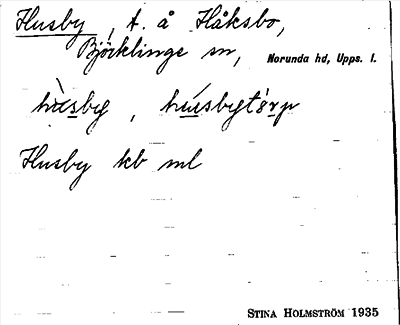 Husby, t. å Håksbo,
Björklinge sn, Norunda hd, Upps. l.
hùsby, húsbytòrp
Husby kb ml
STINA HOLMSTRÖM 1935